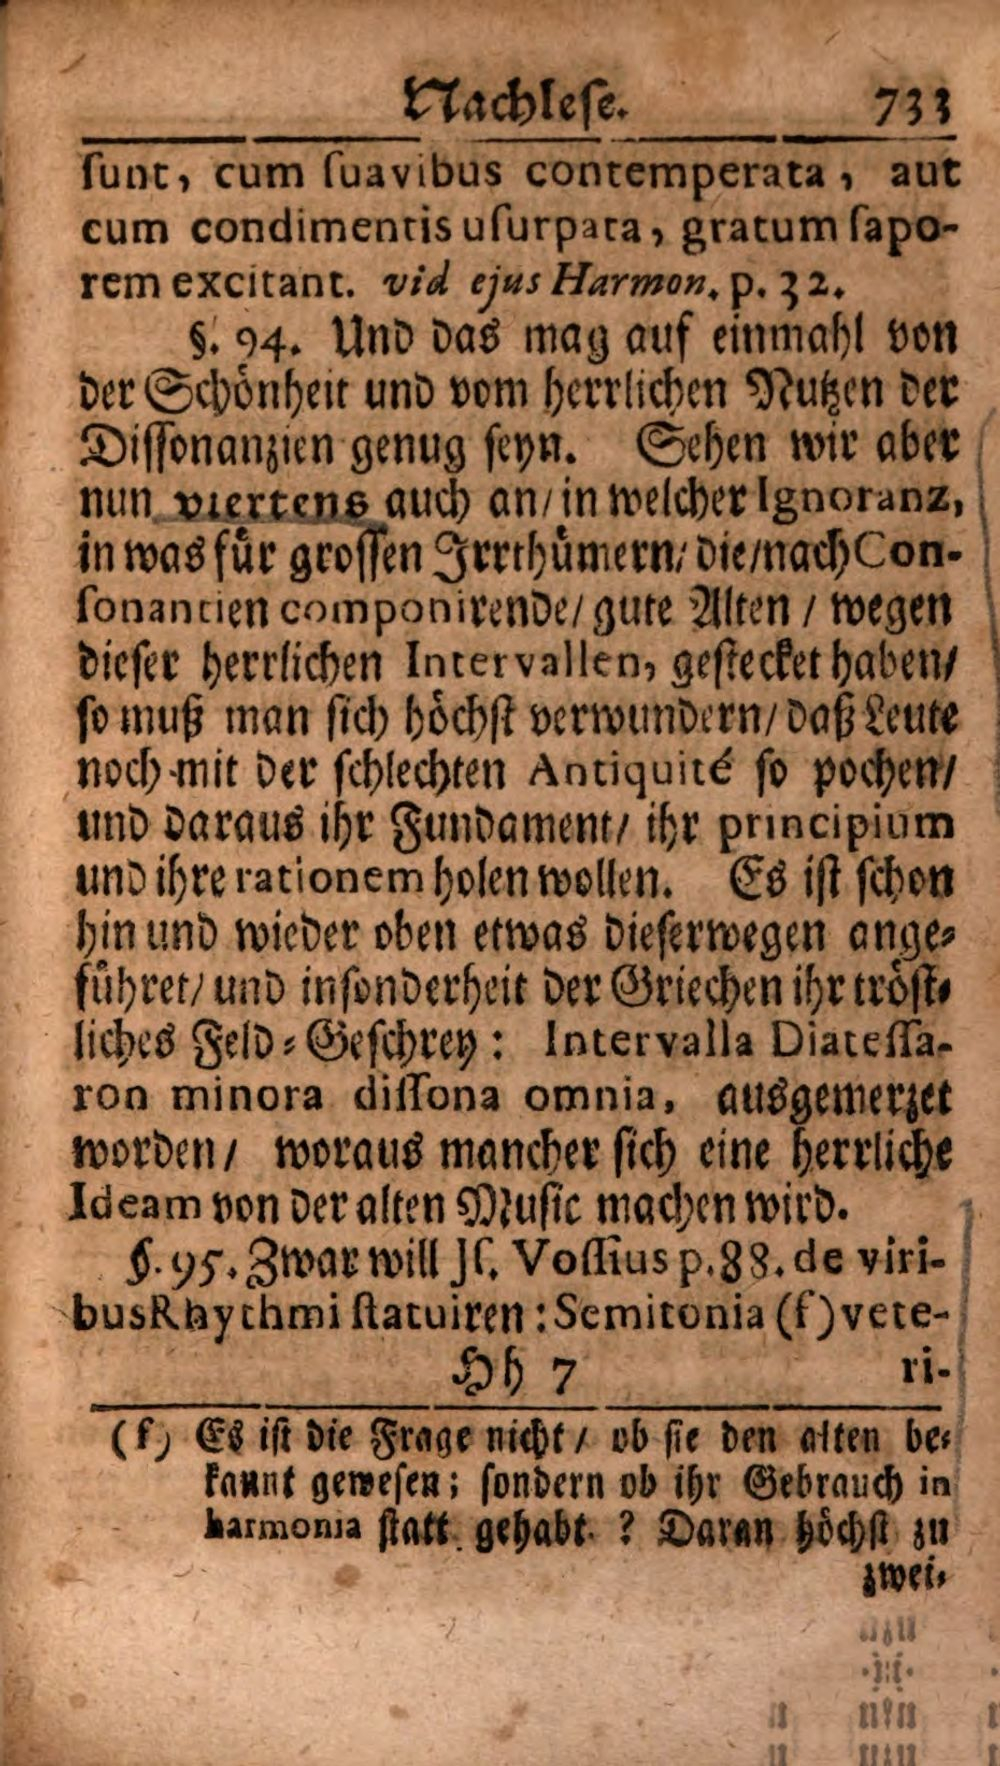 Nachleſe. 733
ſunt, cum ſuavibus contemperata, aut
cum condimentis uſurpata, gratum ſapo-
rem excitant. vid ejus Harmon. p. 32.
§. 94. Und das mag auf einmahl von
der Schönheit und vom herrlichen Nutzen der
Diſſonanzien genug ſeyn. Sehen wir aber
nun viertens auch an/ in welcher Ignoranz,
in was für groſſen Irrthümern/ die/nach Con-
ſonantien componirende/ gute Alten / wegen
dieſer herrlichen Intervallen, geſtecket haben/
ſo muß man ſich höchſt verwundern/ daß Leute
noch mit der ſchlechten Antiquité ſo pochen/
und daraus ihr Fundament/ ihr principium
und ihre rationem holen wollen. Es iſt ſchon
hin und wieder oben etwas dieſerwegen ange-
führet/ und inſonderheit der Griechen ihr tröſt-
liches Feld-Geſchrey: Intervalla Diateſſa-
ron minora diſſona omnia, ausgemerzet
worden/ woraus mancher ſich eine herrliche
Ideam von der alten Muſic machen wird.
§. 95. Zwar will Jſ. Voſſius p. 88. de viri-
bus Rhythmi ſtatuiren: Semitonia (f) vete-
Hh 7 ri-
(f) Es iſt die Frage nicht/ ob ſie den alten be-
kannt geweſen; ſondern ob ihr Gebrauch in
harmonia ſtatt gehabt ? Daran höchſt zu
zwei-